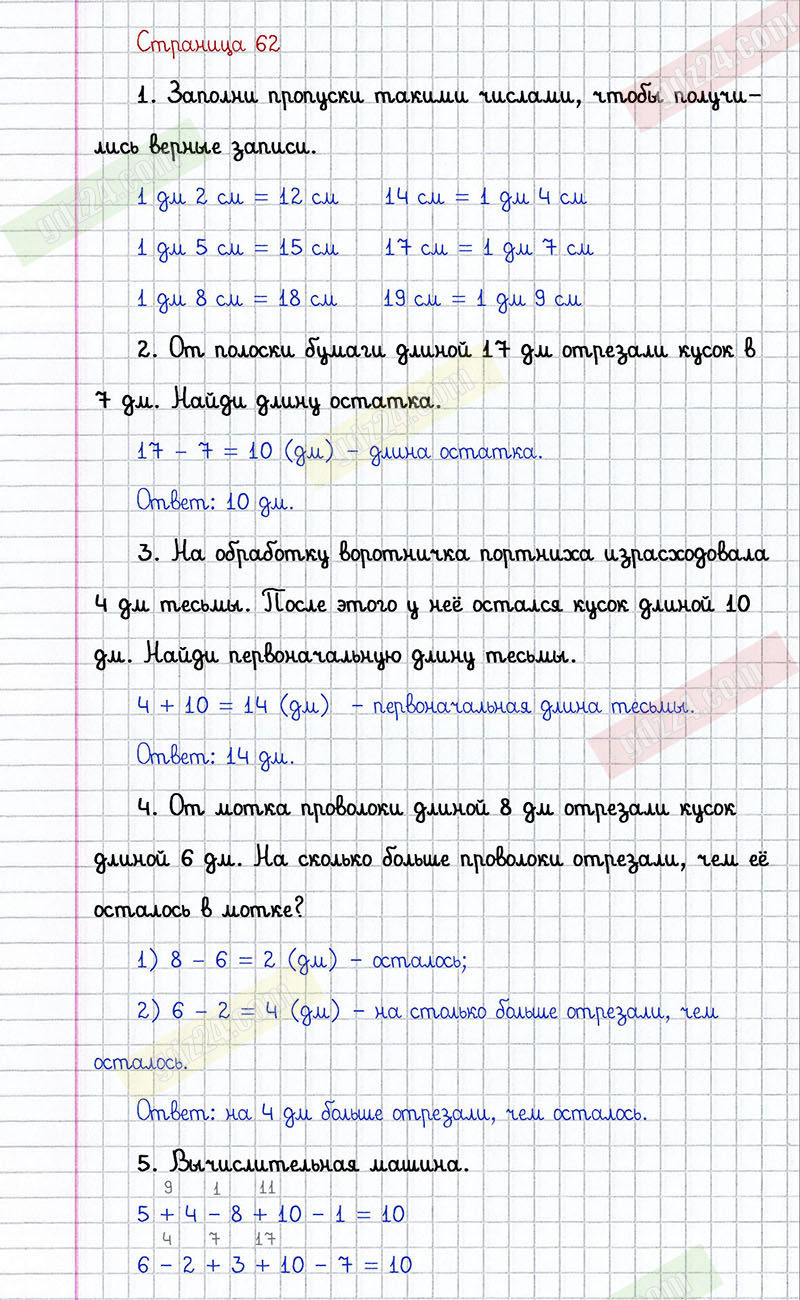 Страница 62
1. Заполни пропуски такими числами, чтобы получи-
лись верные записи.
1 дм 2 см = 12 см 14 см = 1 дм 4 см
1 дм 5 см = 15 см 17 см = 1 дм 7 см
1 дм 8 см = 18 см 19 см = 1 дм 9 см
2. От полоски бумаги длиной 17 дм отрезали кусок в
7 дм. Найди длину остатка.
17 - 7 = 10 (дм) - длина остатка.
Ответ: 10 дм.
3. На обработку воротничка портниха израсходовала
4 дм тесьмы. После этого у неё остался кусок длиной 10
дм. Найди первоначальную длину тесьмы.
4 + 10 = 14 (дм) - первоначальная длина тесьмы.
Ответ: 14 дм.
4. От мотка проволоки длиной 8 дм отрезали кусок
длиной 6 дм. На сколько больше проволоки отрезали, чем её
осталось в мотке?
1) 8 - 6 = 2 (дм) - осталось;
2) 6 - 2 = 4 (дм) - на столько больше отрезали, чем
осталось.
Ответ: на 4 дм больше отрезали, чем осталось.
5. Вычислительная машина.
9 1 11
5 + 4 - 8 + 10 - 1 = 10
4 7 17
6 - 2 + 3 + 10 - 7 = 10
gdz24.com
gdz24.com
gdz24.com
gdz24.com
gdz24.com
gdz24.com